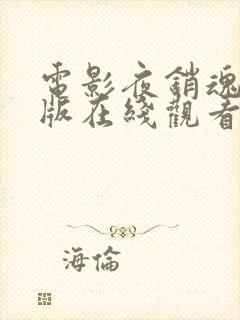 電影夜銷魂
版在綫觀看
海倫